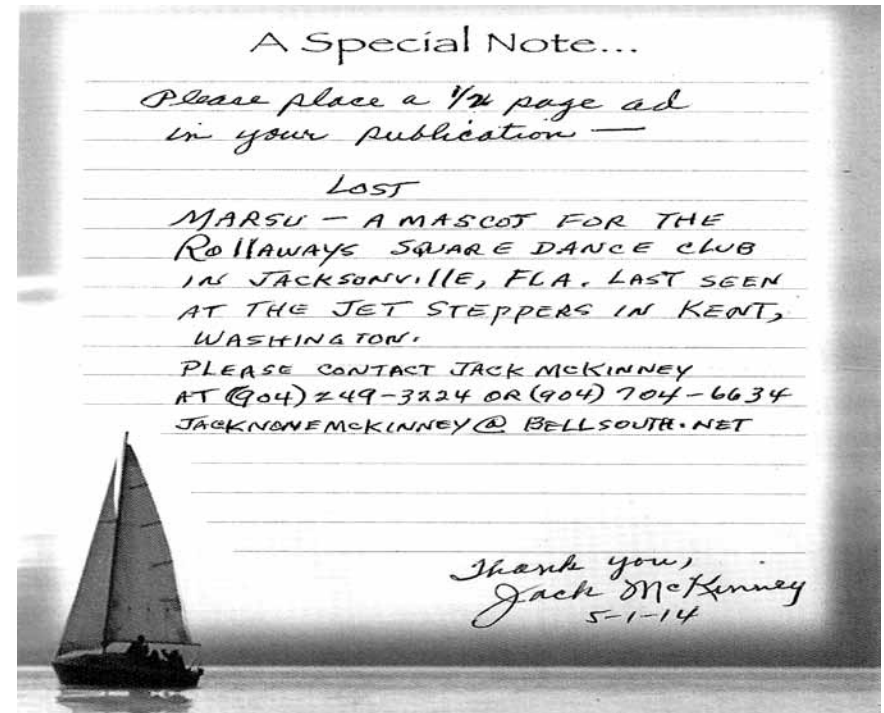 A Special Note...
Please place a 1/2 page ad
in your publication —
LOST
MARSU - A MASCOT FOR THE
RollAWAYS SQUARE DANCE CLUB
IN JACKSONVIllE, FLA. LAST SEEN
AT THE JET STEPPERS IN KENT,
WASHINGTON.
PLEASE CONTACT JACK McKINNEY
AT (904) 249-3224 OR (904) 704-6634
JACKNONEMcKINNEY@BELLSOUTH.NET
Thank you,
Jack McKinney
5-1-14